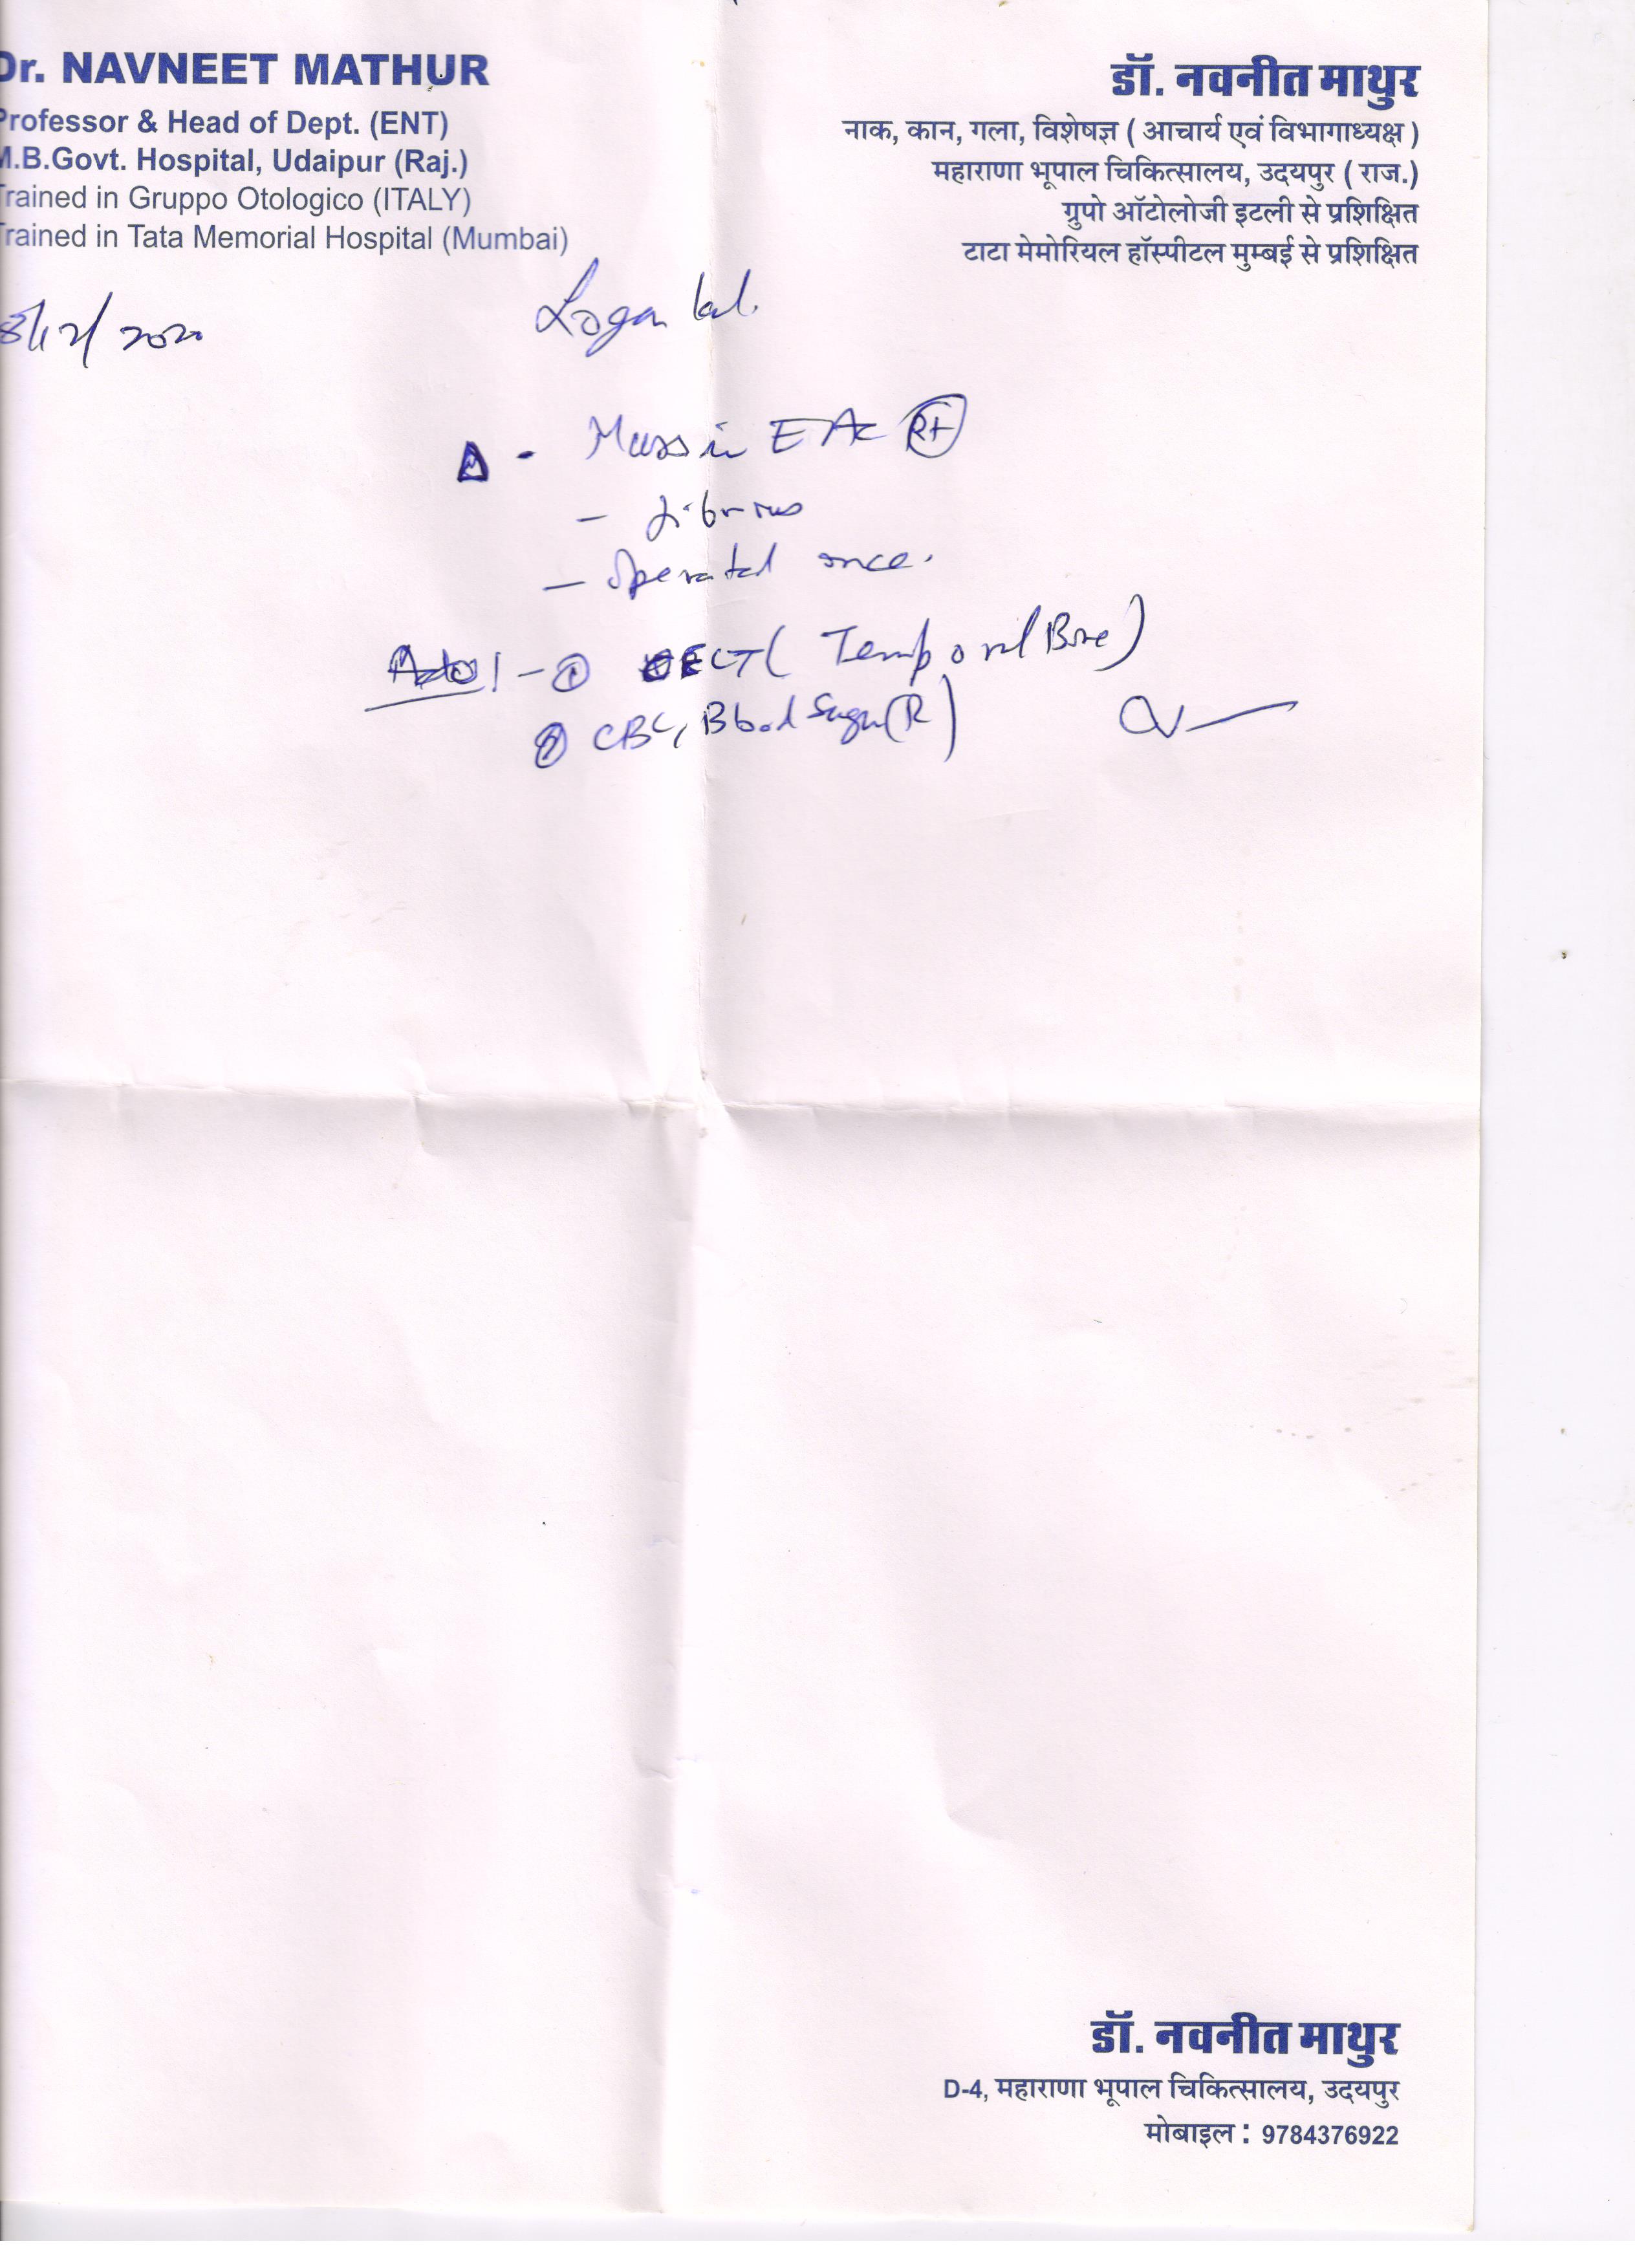 Dr. NAVNEET MATHUR
Professor & Head of Dept. (ENT)
M.B.Govt. Hospital, Udaipur (Raj.)
Trained in Gruppo Otologico (ITALY)
Trained in Tata Memorial Hospital (Mumbai)
डॉ. नवनीत माथुर
नाक, कान, गला, विशेषज्ञ ( आचार्य एवं विभागाध्यक्ष )
महाराणा भूपाल चिकित्सालय, उदयपुर ( राज.)
ग्रुपो ऑटोलोजी इटली से प्रशिक्षित
टाटा मेमोरियल हॉस्पीटल मुम्बई से प्रशिक्षित
8/12/2020
Logan lal.
Δ - Mass in EAC Rt
- fibrous
- operated once.
① CECT ( Temporal Bone )
② CBC, Blood Sugar (R)
डॉ. नवनीत माथुर
D-4, महाराणा भूपाल चिकित्सालय, उदयपुर
मोबाइल : 9784376922